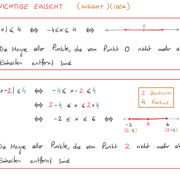 WICHTIGE EINSICHT (INSIGHT)(IDEA)
x| ≤ 4 ⇔ -4 ≤ x ≤ 4 ⇔
0
Die Menge aller Punkte, die vom Punkt 0 nicht mehr a
Einheiten entfernt sind
x-2| ≤ 4 ⇔ -4 ≤ x-2 ≤ 4
2 Zentrum
4 Radius
⇔ 2-4 ≤ x ≤ 2+4
⇔ -2 ≤ x ≤ 6 ⇔
-2 2 6
(2-4) (2+4)
Die Menge aller Punkte, die vom Punkt 2 nicht mehr a
Einheiten entfernt sind